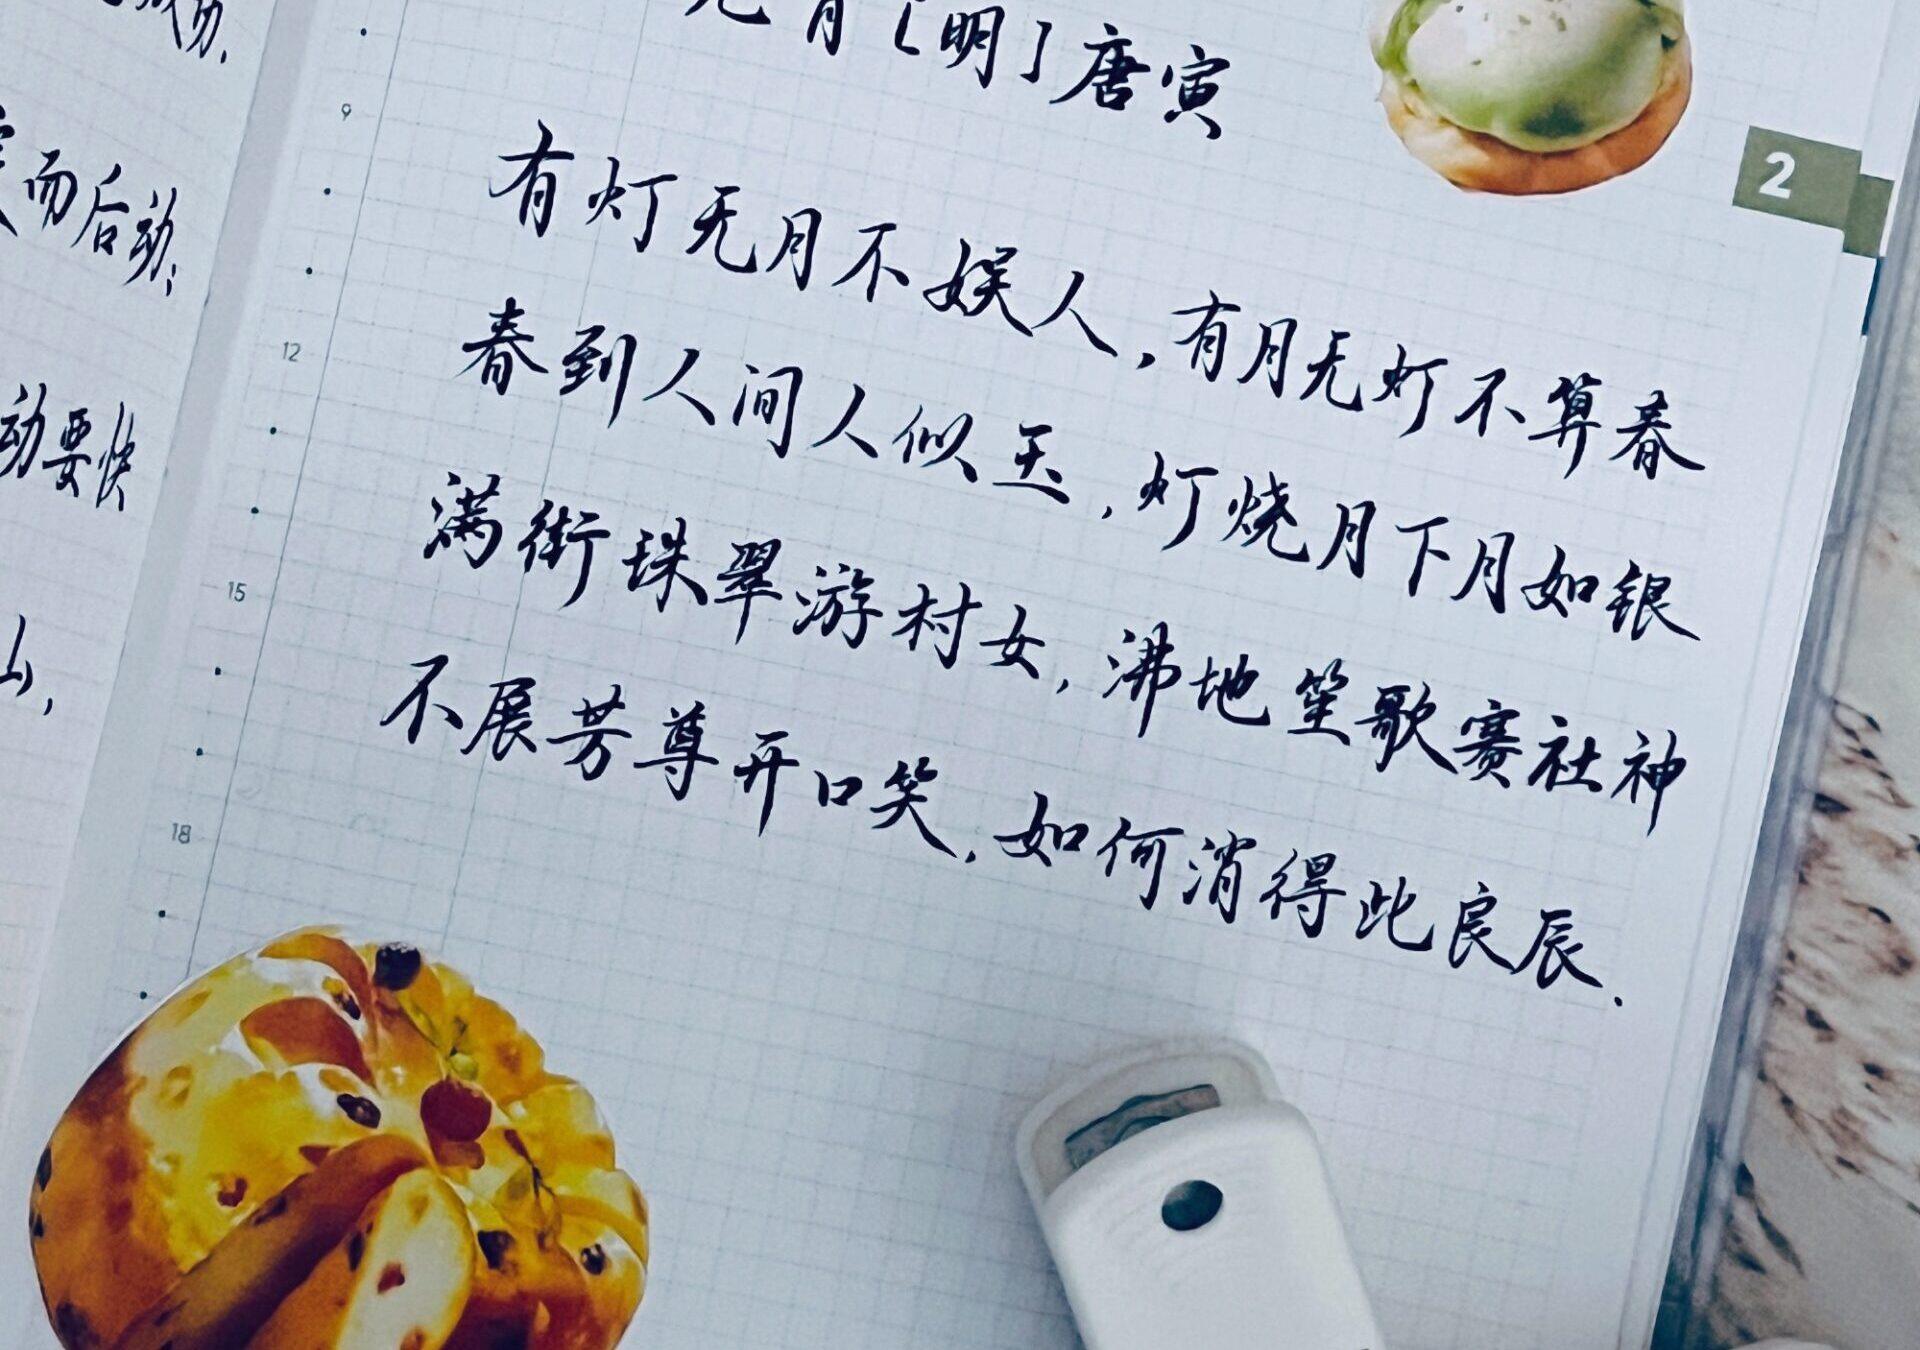 元宵［明］唐寅
有灯无月不娱人，有月无灯不算春
春到人间人似玉，灯烧月下月如银
满街珠翠游村女，沸地笙歌赛社神
不展芳尊开口笑，如何消得此良辰．
而后动；
动要快
山，
9
12
15
18
2